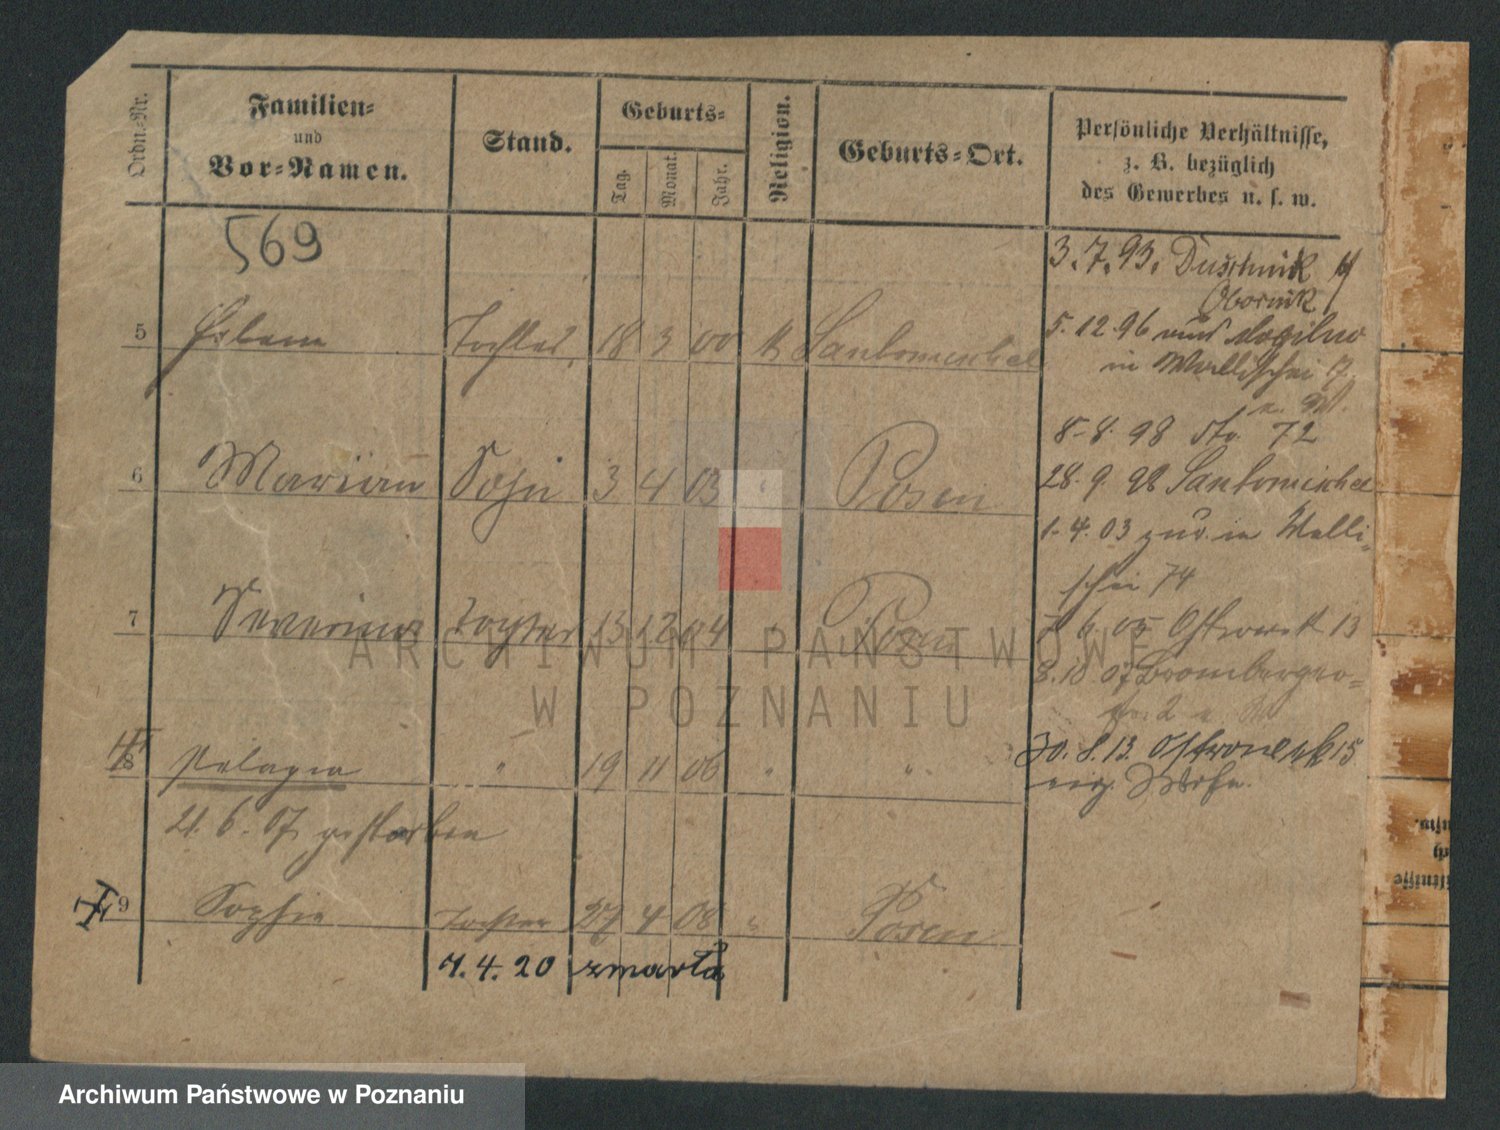 Ordn.-Nr.
Familien-
und
Vor-Namen.
Stand.
Geburts-
Tag. Monat. Jahr.
Religion.
Geburts-Ort.
Persönliche Verhältnisse,
z. B. bezüglich
des Gewerbes u. s. w.
569
3.7.93. Duschnik
Obornik
5 Tochter 18 3 00 k Santomischel
5.12.96 Mogilno
in Wallischei
8.8.98 72
6 Marian Sohn 3 4 03 " Posen
28.9.98 Santomischel
1.4.03 zur. in Walli-
schei 74
7 Severina Tochter 13 12 04 " Posen
6.05 Ostrowek 13
8.10.07 Bromberger-
2
8 Pelagia " 19 11 06 " "
30.8.13. Ostrowek 15
21.6.07 gestorben
9 Sophie Tochter 27 4 08 " Posen
7.4.20 zmarła
ARCHIWUM PAŃSTWOWE
W POZNANIU
Archiwum Państwowe w Poznaniu